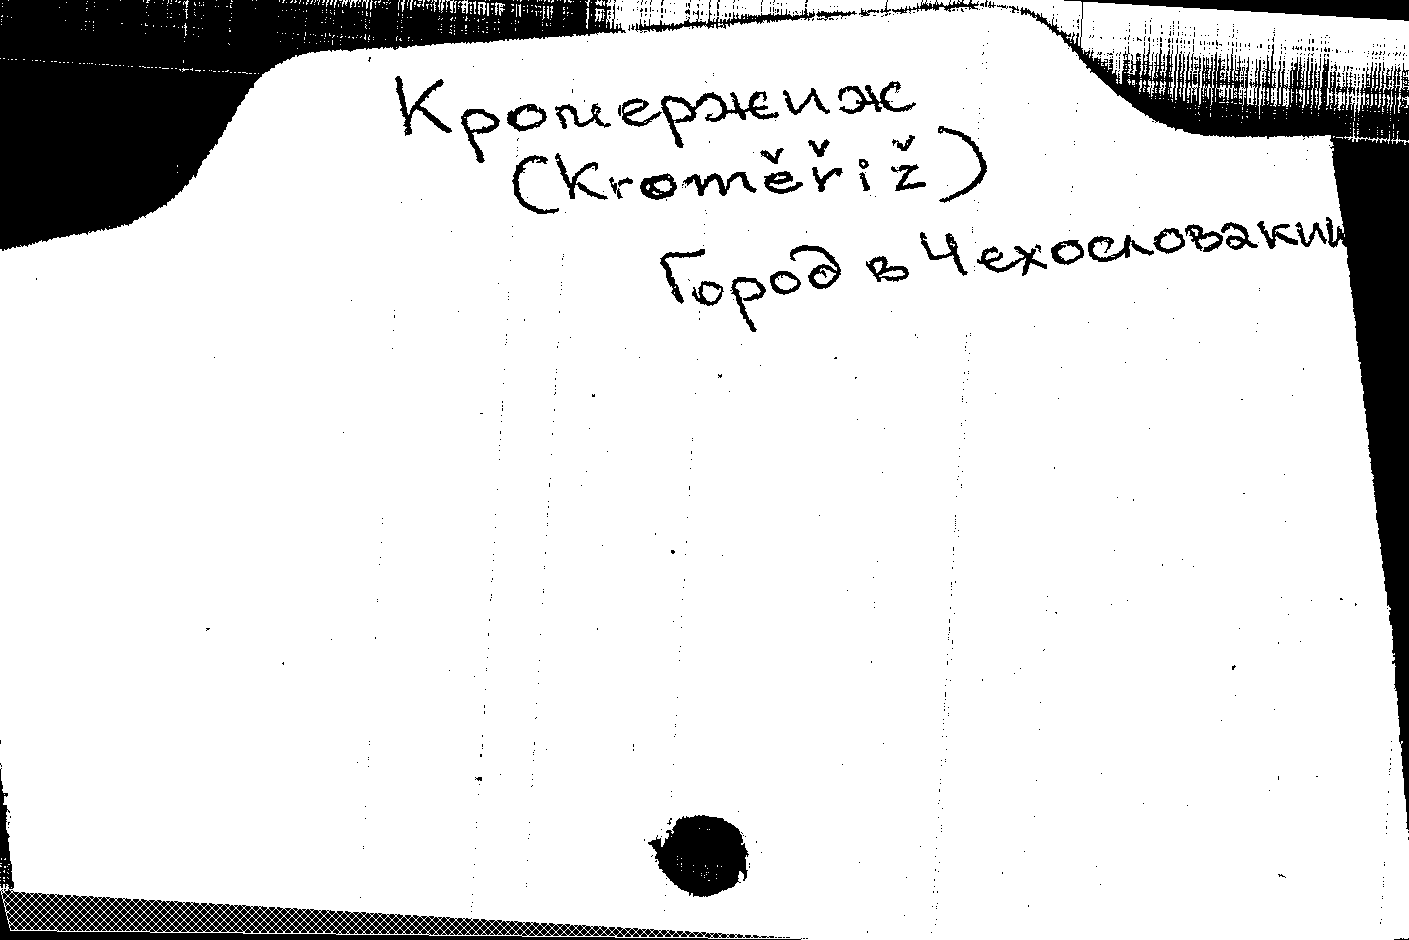 Кромержиж
(Kroměřiž)
Город в Чехословакии